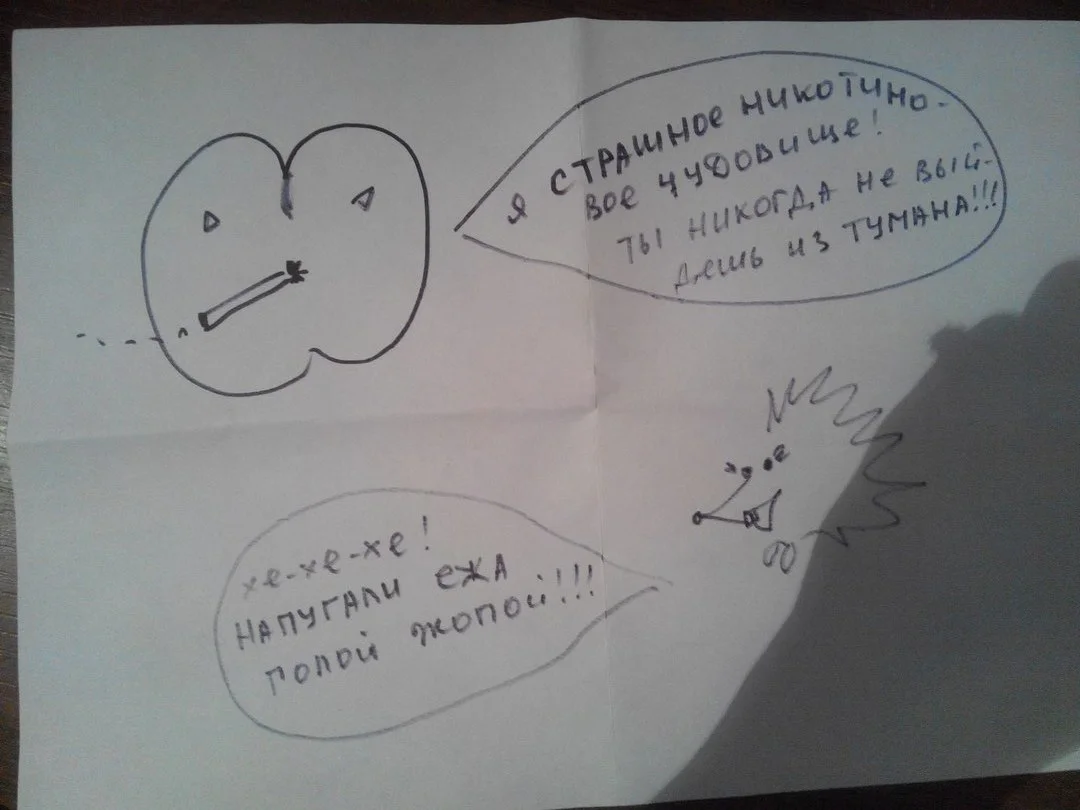 Я СТРАШНОЕ НИКОТИНО-
ВОЕ ЧУДОВИЩЕ!
ТЫ НИКОГДА НЕ ВЫЙ-
ДЕШЬ ИЗ ТУМАНА!!!
хе-хе-хе!
НАПУГАЛИ ЕЖА
ГОЛОЙ ЖОПОЙ!!!